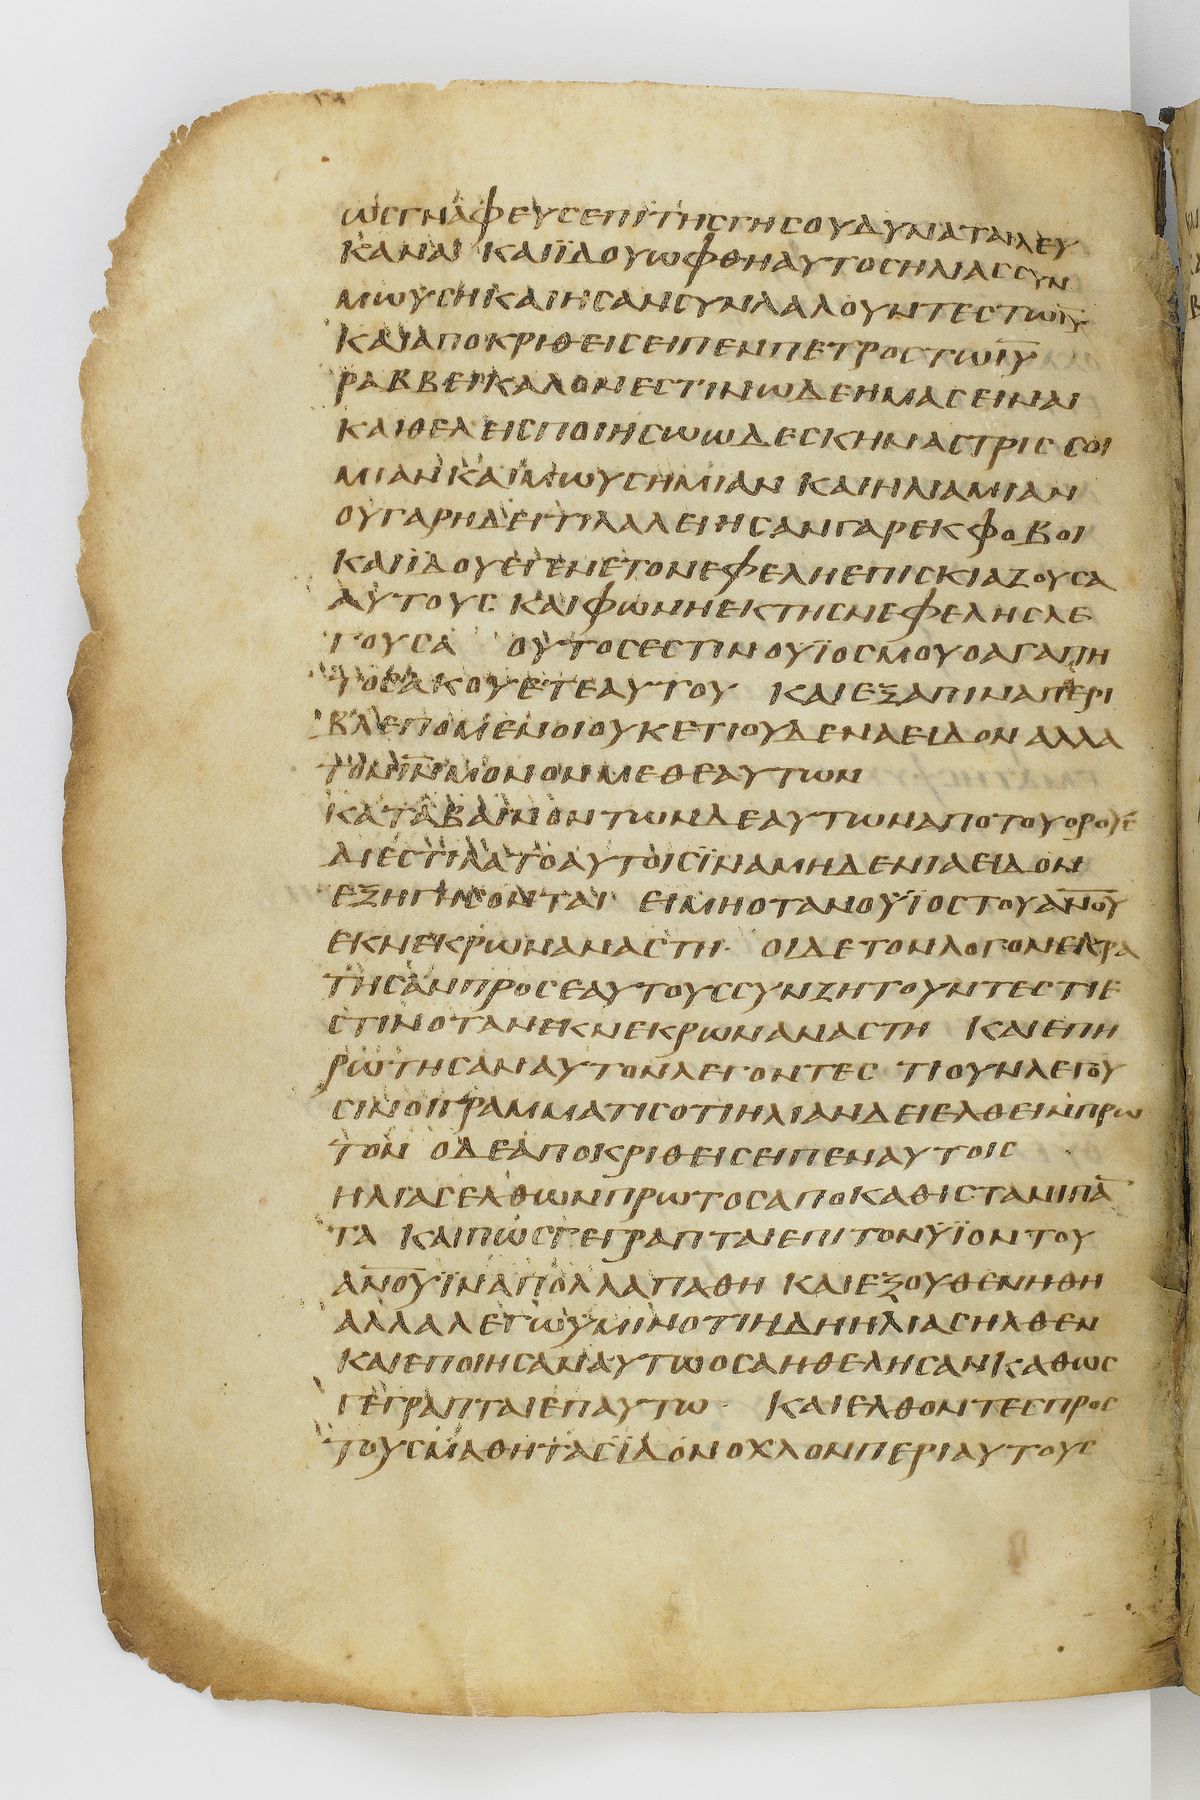 ωσγναφευσεπιτησγησουδυναταιλευ
καναι καιϊδουωφθηαυτοσηλιασσυν
μωυσηκαιησανσυνλαλουντεστωιυ
καιαποκριθεισειπενπετροστωιυ
ραββεικαλονεστινωδεημασειναι
καιθελεισποιησωωδεσκηναστρισσοι
μιανκαιμωυσημιαν καιηλιαμιαν
ουγαρηδειτιλαλειησανγαρεκφοβοι
καιϊδουεγενετονεφεληεπισκιαζουσα
αυτουσ καιφωνηεκτησνεφελησλε
γουσα ουτοσεστινουϊοσμουοαγαπη
τοσακουετεαυτου καιεξαπιναπερι
βλεπομενοιουκετιουδεναειδοναλλα
τονινμονονμεθεαυτων
καταβαινοντωνδεαυτωναποτουορουσ
διεστιλατοαυτοισϊναμηδενιαειδον
εξηγησονται ειμηοτανουϊοστουανου
εκνεκρωναναστη· οιδετονλογονεκρα
τησανπροσεαυτουσσυνζητουντεστιε
στινοτανεκνεκρωναναστη καιεπη
ρωτησαναυτονλεγοντεσ τιουνλεγου
σινοιγραμματισοτιηλιανδειελθεινπρω
τον οδεαποκριθεισειπεναυτοισ
ηλιασελθωνπρωτοσαποκαθιστανιπα
τα καιπωσγεγραπταιεπιτονυϊοντου
ανουϊναπολλαπαθη καιεξουθενηθη
αλλαλεγωυμινοτιηδηηλιασηλθεν
καιεποιησαναυτωοσαηθελησανκαθωσ
γεγραπταιεπαυτω· καιελθοντεσπροσ
τουσμαθητασϊδονοχλονπεριαυτουσ